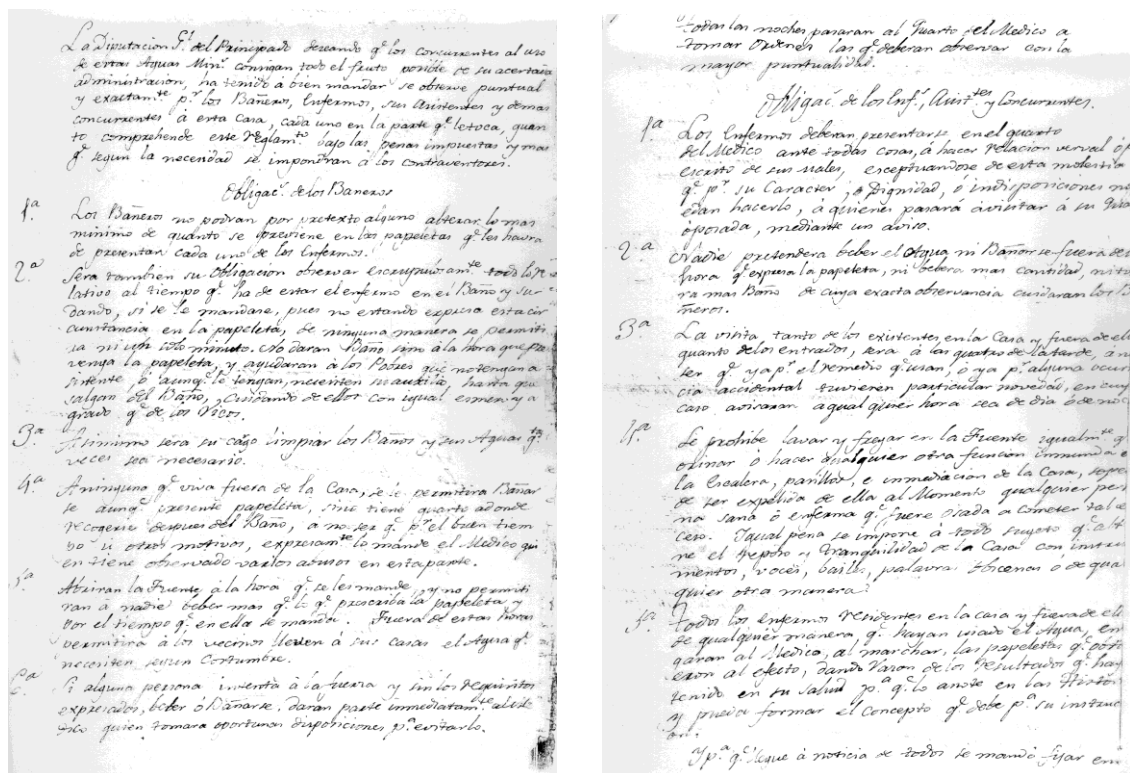 La Diputacion G.l del Principado deseando q.e los concurrentes al uso
de estas Aguas Min.s consigan todo el fruto posible de su acertada
administracion, ha tenido à bien mandar se observe puntual
y exactam.te p.r los Bañeros, Enfermos, sus Asistentes y demas
concurrentes à esta Casa, cada uno en la parte q.e le toca, quan
to comprehende este reglam.to bajo las penas impuestas y mas
q.e segun la necesidad se impondran à los contraventores.
Obligac.s de los Bañeros
1.a Los Bañeros no podran por pretexto alguno alterar lo mas
minimo de quanto se previene en las papeletas q.e les havra
de presentar cada uno de los Enfermos.
2.a Sera tambien su obligacion observar escrupulosam.te todo lo re
lativo al tiempo q.e ha de estar el enfermo en el Baño y su
dando, si se le mandare, pues no estando expresa esta cir
cunstancia en la papeleta, de ninguna manera se permiti
ra ni un solo minuto. No daran Baño sino à la hora que pre
venga la papeleta, y ayudaran à los Pobres que no tengan a
sistente, ò aunq.e le tengan, necesiten su auxilio, hasta que
salgan del Baño, cuidando de ellos con igual esmero y a
grado q.e de los Ricos.
3.a Asimismo sera su cargo limpiar los Baños y sus Aguas q.tas
veces sea necesario.
4.a A ninguno q.e viva fuera de la Casa, se le permitira Bañar
se aunq.e presente papeleta, sino tiene quarto adonde
recogerse despues del Baño, a no ser q.e p.r el buen tiem
po ù otros motivos, expresam.te lo mande el Medico qui
en tiene observado varios abusos en esta parte.
5.a Abriran la Fuente à la hora q.e se les mande, y no permiti
ran à nadie beber mas q.e lo q.e prescriba la papeleta y
por el tiempo q.e en ella se manda. Fuera de estas horas
permitirà à los vecinos lleven à sus casas el Agua q.e
necesiten, segun Costumbre.
6.a Si alguna persona intenta à la fuerza y sin los requisitos
expresados, beber o Bañarse, daran parte inmediatam.te al Me
dico quien tomara oportunas disposiciones p.a evitarlo.
todas las noches pasaran al Quarto del Medico a
tomar Ordenes las q.e deberan observar con la
mayor puntualidad.
Obligac.s de los Enf.s, Asist.tes y Concurrentes.
1.a Los Enfermos deberan presentarse en el quarto
del Medico ante todas cosas, à hacer relacion verval ó p
escrito de sus males, esceptuandose de esta molestia
q.e p.r su Caracter, o Dignidad, ó indisposiciones no
edan hacerlo, à quienes pasará à visitar á su
posada, mediante un aviso.
2.a Nadie pretendera beber el Agua, ni Bañarse fuera de
hora q.e expresa la papeleta, ni bebera mas cantidad, ni to
ra mas Baño de cuya exacta observancia cuidaran los B
ñeros.
3.a La visita tanto de los existentes, en la Casa y fuera de ell
quanto de los entrados, sera à las quatro de la tarde, à no
ser q.e ya p.r el remedio q.e usan, o ya p.r alguna ocur
cia accidental tuvieren particular novedad, en cuy
caso avisaran a qualquier hora sea de dia ó de noc
4.a Se prohibe lavar y fregar en la Fuente igualm.te q
orinar ò hacer qualquier otra funcion inmunda e
la Escalera, pasillos, e inmediacion de la Casa, sope
de ser expelida de ella al Momento qualquier per
na sana ò enferma q.e fuere osada a cometer tal e
ceso. Igual pena se impone à todo sugeto q.e alt
re el reposo y tranquilidad de la Casa con instru
mentos, voces, baile, palabras obscenas o de qua
quier otra manera.
5.a Todos los enfermos residentes en la casa y fuera de ell
de qualquier manera, q.e hayan usado el Agua, en
garan al Medico, al marchar, las papeletas q.e obtu
eron al efecto, dando razon de los resultados q.e hay
tenido en su salud p.a q.e lo anote en las Histor
y pueda formar el concepto q.e debe p.a su instruc
on.
Y p.a q.e llegue à noticia de todos se mandó fijar en